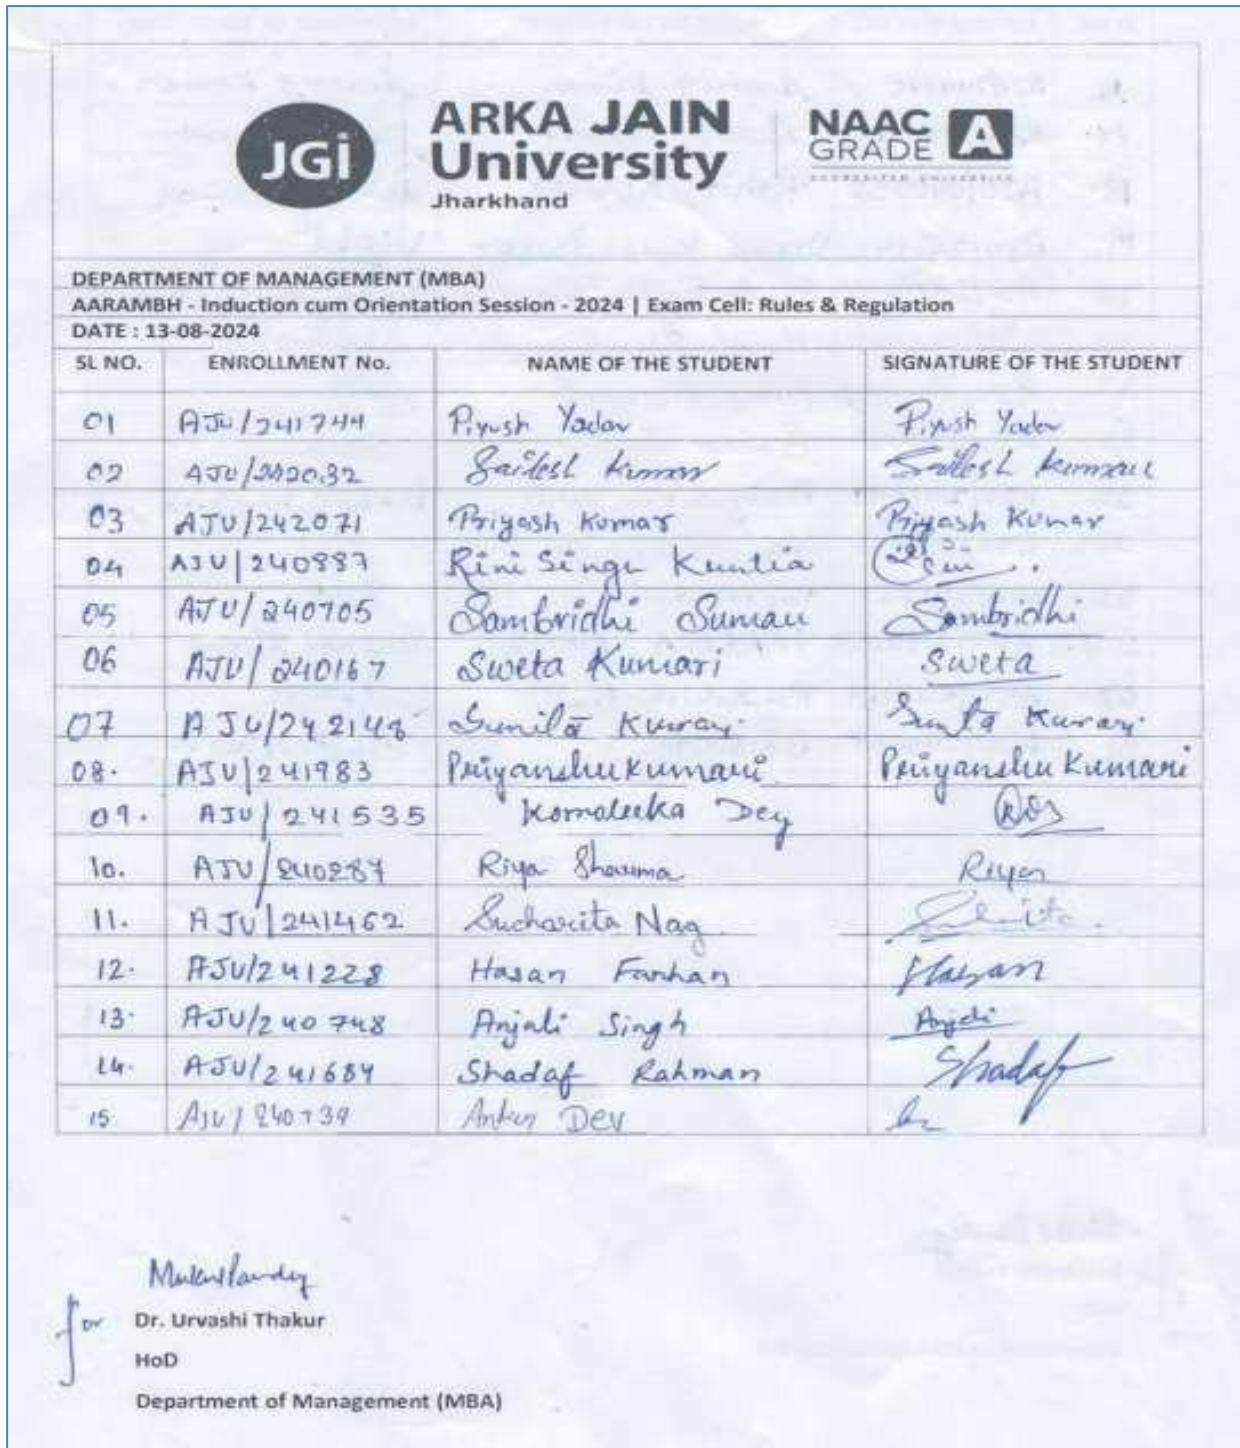 JGi
ARKA JAIN
University
Jharkhand
NAAC
GRADE A
ACCREDITED UNIVERSITY
DEPARTMENT OF MANAGEMENT (MBA)
AARAMBH - Induction cum Orientation Session - 2024 | Exam Cell: Rules & Regulation
DATE : 13-08-2024
SL NO. ENROLLMENT No. NAME OF THE STUDENT SIGNATURE OF THE STUDENT
01 AJU/241744 Piyush Yadav Piyush Yadav
02 AJU/242032 Sailesh Kumar Sailesh Kumar
03 AJU/242071 Priyash Kumar Priyash Kumar
04 AJU/240887 Rini Singh Kuntia Rini
05 AJU/240705 Sambridhi Suman Sambridhi
06 AJU/240167 Sweta Kumari Sweta
07 AJU/242148 Sunita Kumari Sunita Kumari
08. AJU/241983 Priyanshu Kumari Priyanshu Kumari
09. AJU/241535 Komaleeka Dey
10. AJU/240287 Riya Sharma Riya
11. AJU/241462 Sucharita Nag
12. AJU/241228 Hasan Farhan Hasan
13. AJU/240748 Anjali Singh Anjali
14. AJU/241684 Shadaf Rahman Shadaf
15 AJU/240739 Ankur Dey
for
Dr. Urvashi Thakur
HoD
Department of Management (MBA)